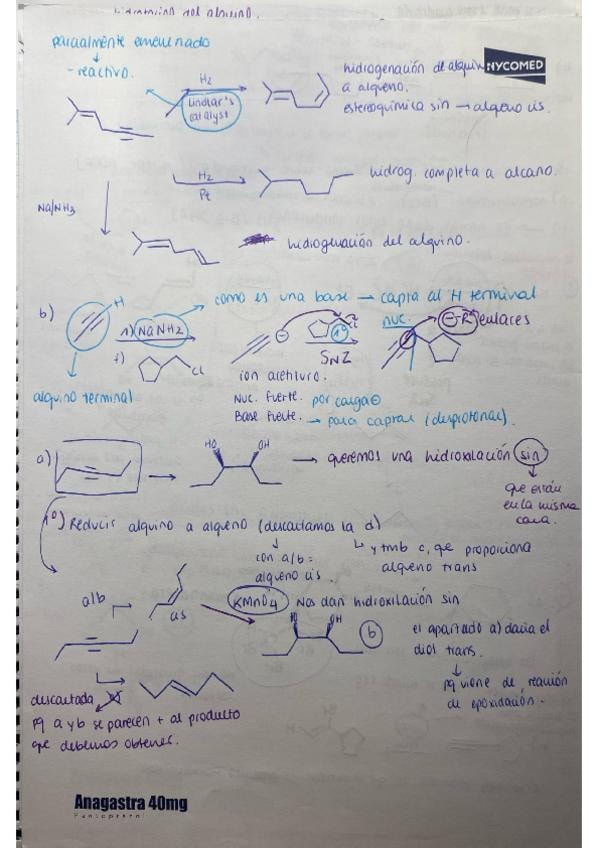 Hidrogenación del alquino.
parcialmente envenenado
- reactivo.
H₂
Lindlar's
catalyst
hidrogenación de alquin
NYCOMED
a alqueno.
estereoquímica sin → alqueno cis.
H₂
Pt
hidrog. completa a alcano.
Na/NH₃
hidrogenación del alquino.
b)
H
1) NaNH₂
como es una base → capta al H terminal
Cl
alquino terminal
⊖
Cl
1º
SN2
nuc.
⊖-R
enlaces
ion acetiluro.
Nuc. fuerte. por carga ⊖
Base fuerte. → para captar (desprotonar).
a)
HO
OH
→ queremos una hidroxilación sin
que están
en la misma
cara.
1º) Reducir alquino a alqueno (descartamos la d)
con a/b =
alqueno cis.
y tmb c, que proporciona
alqueno trans
a/b
cis
KMnO4
Nos dan hidroxilación sin
OH
b
el apartado a) daría el
diol trans.
pq viene de reacción
de epoxidación.
descartada
pq a y b se parecen + al producto
que debemos obtener.
Anagastra 40mg
Pantoprazol